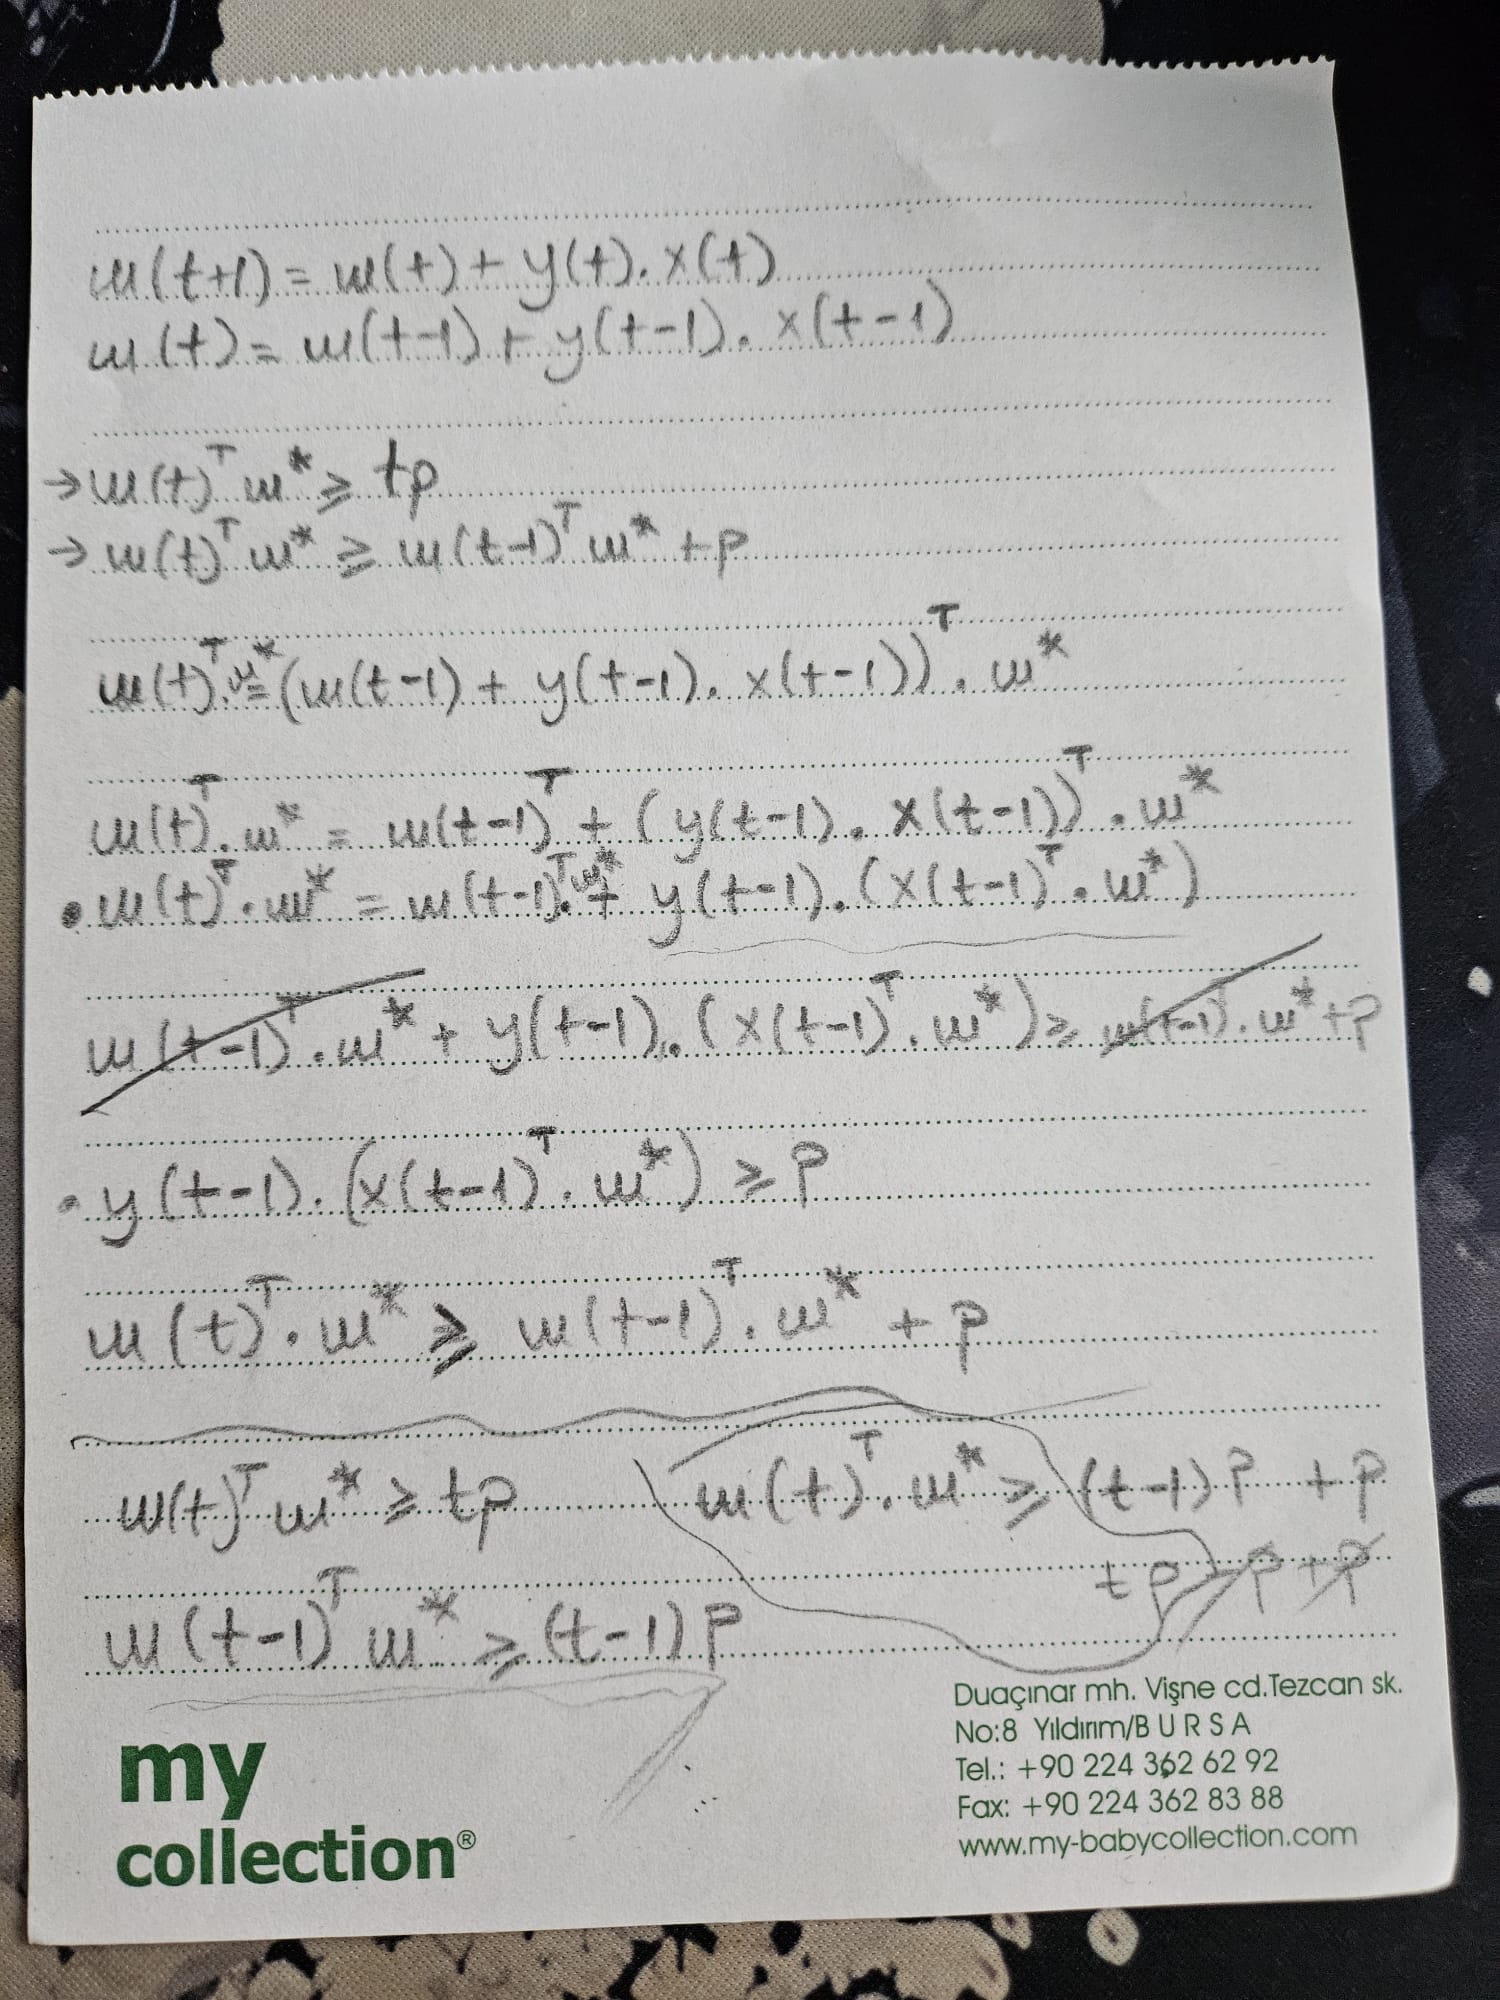 w(t+1) = w(t) + y(t). x(t)
w(t) = w(t-1) + y(t-1). x(t-1)
→ w(t)ᵀ w* ≥ tp
→ w(t)ᵀ w* ≥ w(t-1)ᵀ w* + p
w(t)ᵀ. w* = (w(t-1) + y(t-1). x(t-1))ᵀ. w*
w(t)ᵀ. w* = w(t-1)ᵀ + (y(t-1). x(t-1))ᵀ. w*
• w(t)ᵀ. w* = w(t-1)ᵀ. w* + y(t-1). (x(t-1)ᵀ. w*)
w(t-1)ᵀ. w* + y(t-1). (x(t-1)ᵀ. w*) ≥ w(t-1)ᵀ. w* + p
• y(t-1). (x(t-1)ᵀ. w*) ≥ p
w(t)ᵀ. w* ≥ w(t-1)ᵀ. w* + p
w(t)ᵀ w* ≥ tp
w(t-1)ᵀ w* ≥ (t-1) p
w(t)ᵀ. w* ≥ (t-1) p + p
tp - p + p
my
collection®
Duaçınar mh. Vişne cd.Tezcan sk.
No:8 Yıldırım/B U R S A
Tel.: +90 224 362 62 92
Fax: +90 224 362 83 88
www.my-babycollection.com